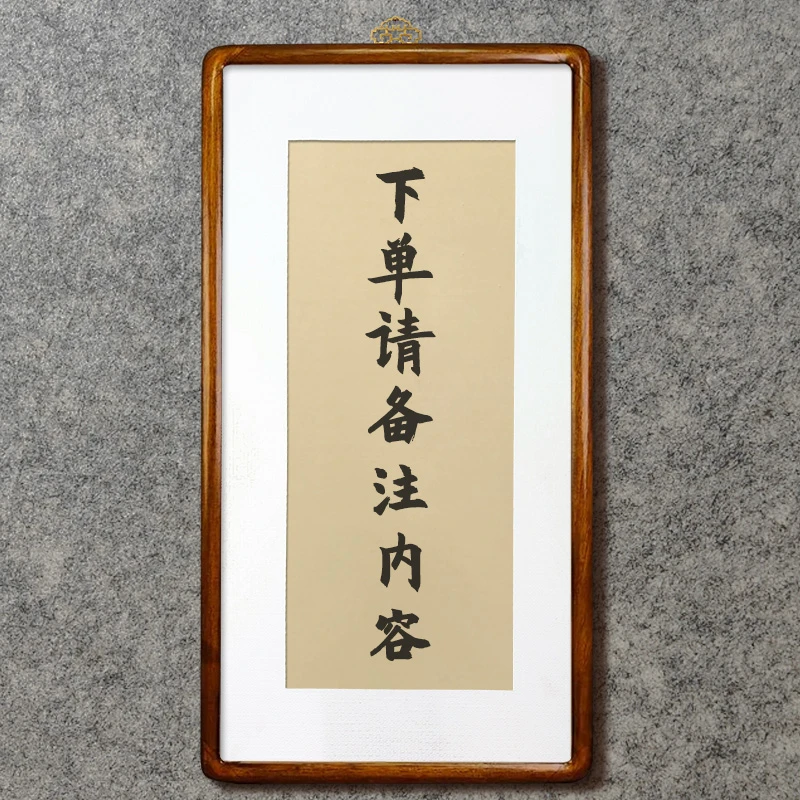 下单请备注内容